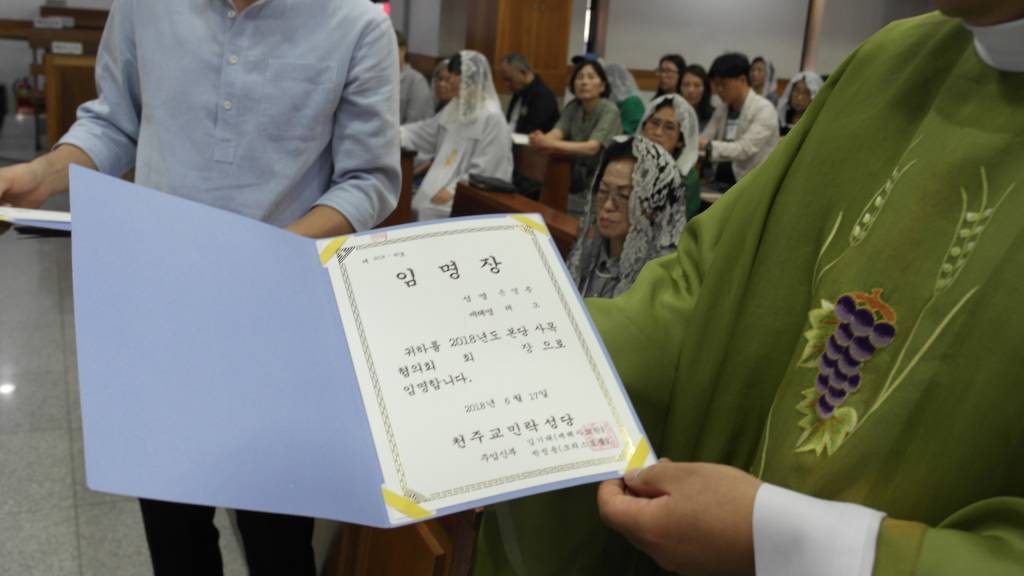 임 명 장
성 명
세례명
귀하를 2018년도 본당 사목
협의회 회 장 으로
임명합니다.
2018년 6월 17일
천주교민락성당
주임신부